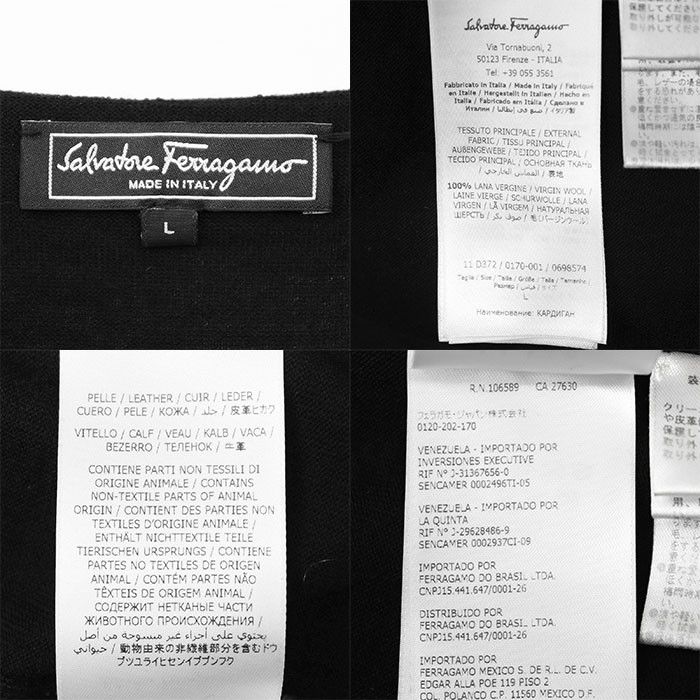 Salvatore Ferragamo
MADE IN ITALY
L
Salvatore Ferragamo
Via Tornabuoni, 2
50123 Firenze - ITALIA
Tel: +39 055 3561
Fabbricato in Italia / Made in Italy / Fabriqué
en Italie / Hergestellt in Italien / Hecho en
Italia / Fabricado em Itália / Сделано в
Италии / صنع في إيطاليا / イタリア製
TESSUTO PRINCIPALE / EXTERNAL
FABRIC / TISSU PRINCIPAL /
AUßENGEWEBE / TEJIDO PRINCIPAL /
TECIDO PRINCIPAL / ОСНОВНАЯ ТКАНЬ
/ القماس الخارجي / 表地
100% LANA VERGINE / VIRGIN WOOL /
LAINE VIERGE / SCHURWOLLE / LANA
VIRGEN / LÃ VIRGEM / НАТУРАЛЬНАЯ
ШЕРСТЬ / صوف بكر / 毛(バージンウール)
11 D372 / 0170-001 / 0698574
Taglia / Size / Taille / Größe / Talla / Tamanho /
Размер / قياس / サイズ
L
Наименование: КАРДИГАН
PELLE / LEATHER / CUIR / LEDER /
CUERO / PELE / КОЖА / جلد / 皮革ヒカワ
VITELLO / CALF / VEAU / KALB / VACA /
BEZERRO / ТЕЛЕНОК / 牛革
CONTIENE PARTI NON TESSILI DI
ORIGINE ANIMALE / CONTAINS
NON-TEXTILE PARTS OF ANIMAL
ORIGIN / CONTIENT DES PARTIES NON
TEXTILES D'ORIGINE ANIMALE /
ENTHÄLT NICHTTEXTILE TEILE
TIERISCHEN URSPRUNGS / CONTIENE
PARTES NO TEXTILES DE ORIGEN
ANIMAL / CONTÉM PARTES NÃO
TÊXTEIS DE ORIGEM ANIMAL /
СОДЕРЖИТ НЕТКАНЫЕ ЧАСТИ
ЖИВОТНОГО ПРОИСХОЖДЕНИЯ /
يحتوي على أجزاء غير منسوجة من أصل
حيواني / 動物由来の非繊維部分を含むドウ
ブツユライヒセンイブブンフク
R.N. 106589 CA 27630
フェラガモ・ジャパン株式会社
0120-202-170
VENEZUELA - IMPORTADO POR
INVERSIONES EXECUTIVE
RIF Nº J-31367656-0
SENCAMER 0002496TI-05
VENEZUELA - IMPORTADO POR
LA QUINTA
RIF Nº J-29628486-9
SENCAMER 0002937CI-09
IMPORTADO POR
FERRAGAMO DO BRASIL LTDA.
CNPJ15.441.647/0001-26
DISTRIBUIDO POR
FERRAGAMO DO BRASIL LTDA.
CNPJ15.441.647/0001-26
IMPORTADO POR
FERRAGAMO MEXICO S. DE R.L. DE C.V.
EDGAR ALLA POE 119 PISO 2
COL. POLANCO C.P. 11560 MEXICO D.F.